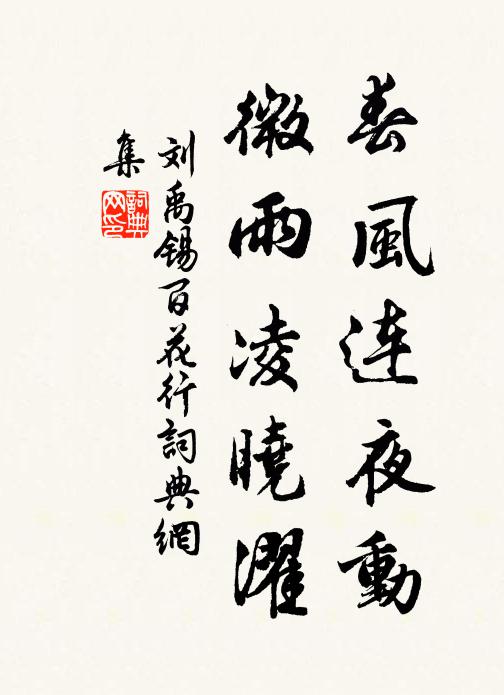 春風連夜動
微雨凌曉濯
刘禹錫百花行詞典網
集
詞典
网印